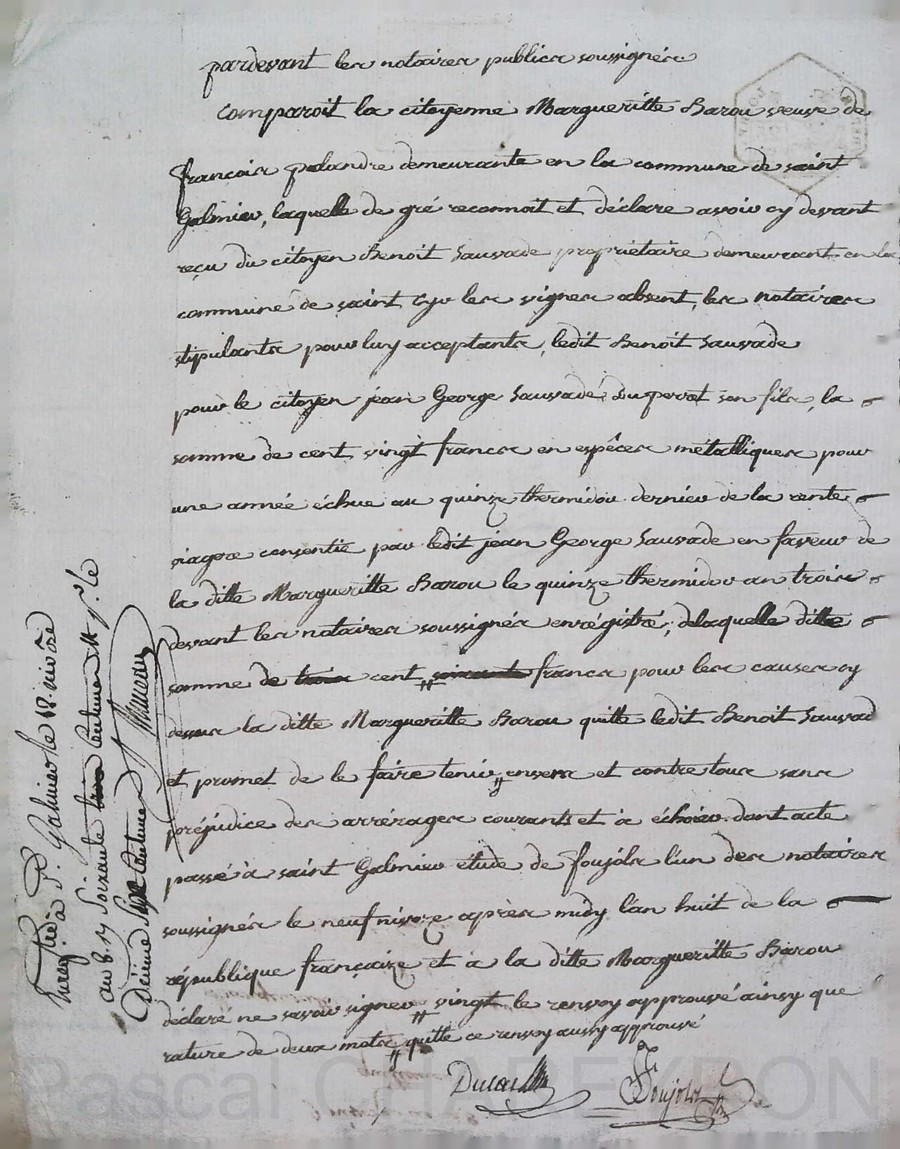 pardevant les notaires publics soussignés
comparoit la citoyenne Margueritte Barou veuve de
françois palandre demeurante en la commune de saint
Galmier, laquelle de gré reconnoit et déclare avoir cy devant
reçu du citoyen Benoit Sauvade propriétaire demeurant en la
commune de saint cyr les vignes absent, les notaires
stipulants pour luy acceptants, ledit Benoit Sauvade
pour le citoyen jean George Sauvade Duperrot son fils, la
somme de cent vingt francs en espêces métalliques pour
une année échue au quinze thermidor dernier de la rente
viagere consentie par ledit jean George Sauvade en faveur de
la ditte Margueritte Barou le quinze thermidor an trois
devant les notaires soussignés enrégistré; delaquelle ditte
somme de trois cent soixante francs pour les causes cy
dessus la ditte Margueritte Barou quitte ledit Benoit Sauvad
et promet de le faire tenir envers et contre tous sans
préjudice des arrérages courants et à échoir. dont acte
passé à saint Galmier étude de foujols l'un des notaires
soussignés le neuf nivoze après midy l'an huit de la
république françaize et à la ditte Margueritte Barou
déclaré ne savoir signer vingt le renvoy approuvé ainsy que
rature de deux mots quitte ce renvoy aussy approuvé
Foujols
Enregitré à St. Galmier le 18. nivôse
an 8. Soixante centimes
Pascal CHAPEYRON